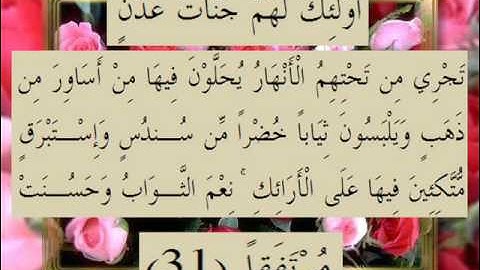 أُوْلَئِكَ لَهُمْ جَنَّاتُ عَدْنٍ
تَجْرِي مِن تَحْتِهِمُ الْأَنْهَارُ يُحَلَّوْنَ فِيهَا مِنْ أَسَاوِرَ مِن
ذَهَبٍ وَيَلْبَسُونَ ثِيَاباً خُضْراً مِّن سُندُسٍ وَإِسْتَبْرَقٍ
مُّتَّكِئِينَ فِيهَا عَلَى الْأَرَائِكِ ۚ نِعْمَ الثَّوَابُ وَحَسُنَتْ
مُرْتَفَقاً (31)